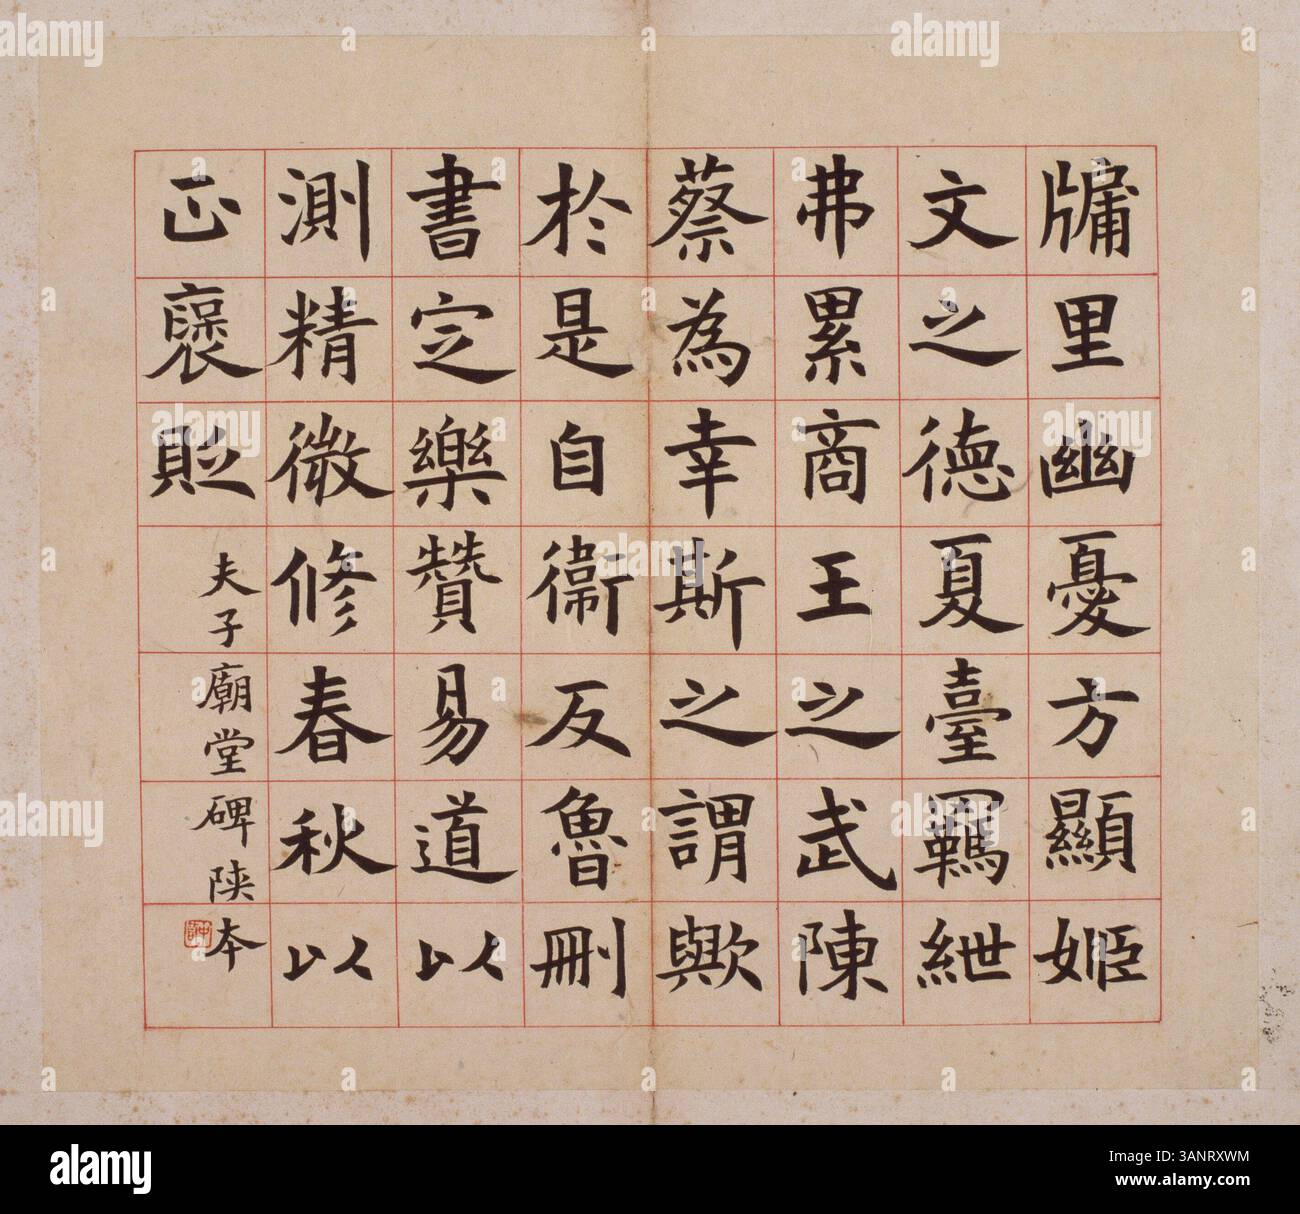 牖里幽憂方顯姬
文之德夏臺羈紲
弗累商王之武陳
蔡為幸斯之謂歟
於是自衛反魯刪
書定樂贊易道以
測精微修春秋以
正褒貶
夫子廟堂碑陝本
alamy
Image ID: 3ANRXWM
www.alamy.com